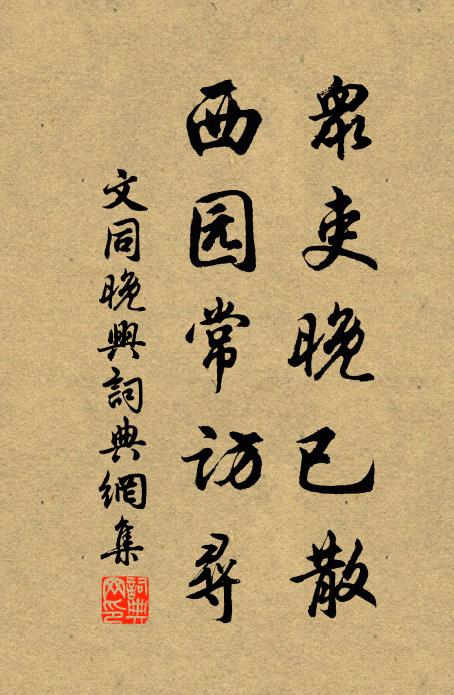 眾吏晚已散
西园常访尋
文同晚興詞典網集
詞典网印